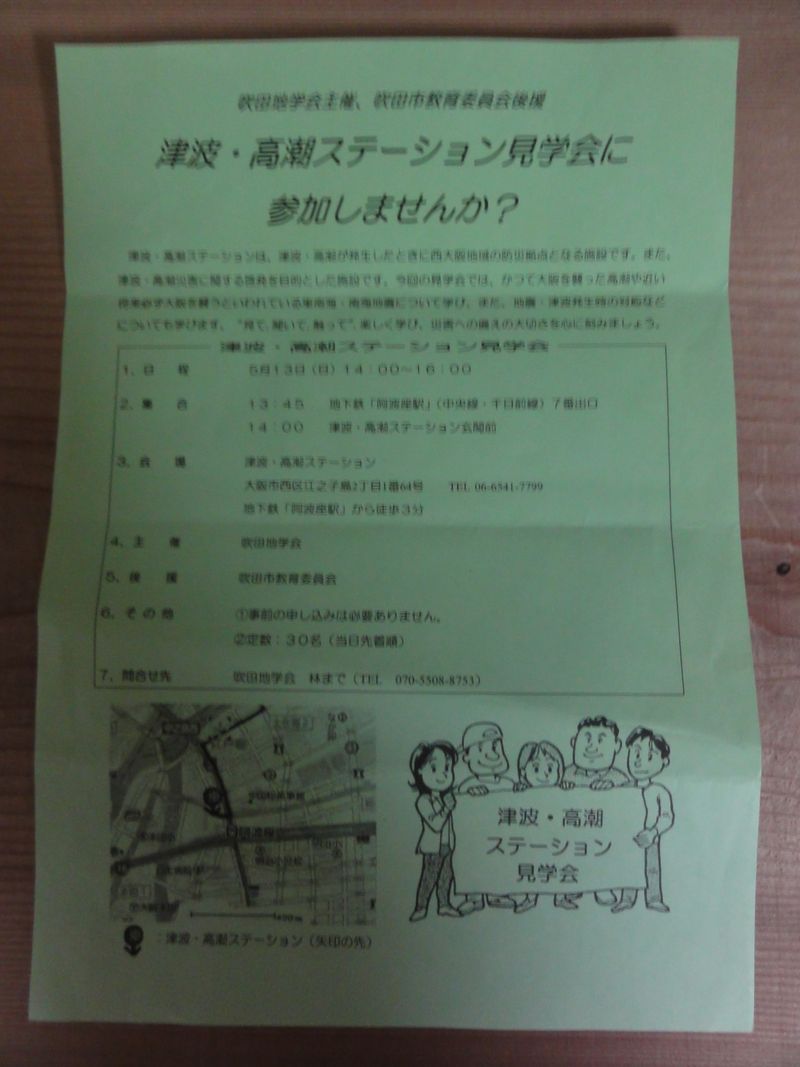 吹田地学会主催、吹田市教育委員会後援
津波・高潮ステーション見学会に
参加しませんか？
津波・高潮ステーションは、津波・高潮が発生したときに西大阪地域の防災拠点となる施設です。また、
津波・高潮災害に関する啓発を目的とした施設です。今回の見学会では、かつて大阪を襲った高潮や近い
将来必ず大阪を襲うといわれている東南海・南海地震について学び、また、地震・津波発生時の対処など
についても学びます。"見て、聞いて、触って"、楽しく学び、災害への備えの大切さを心に刻みましょう。
津波・高潮ステーション見学会
1、日 程 5月13日（日）14：00～16：00
2、集 合 13：45 地下鉄「阿波座駅」（中央線・千日前線）7番出口
14：00 津波・高潮ステーション玄関前
3、会 場 津波・高潮ステーション
大阪市西区江之子島2丁目1番64号 TEL 06-6541-7799
地下鉄「阿波座駅」から徒歩3分
4、主 催 吹田地学会
5、後 援 吹田市教育委員会
6、その他 ①事前の申し込みは必要ありません。
②定数：30名（当日先着順）
7、問合せ先 吹田地学会 林まで（TEL 070-5508-8753）
津波・高潮
ステーション
見学会
：津波・高潮ステーション（矢印の先）